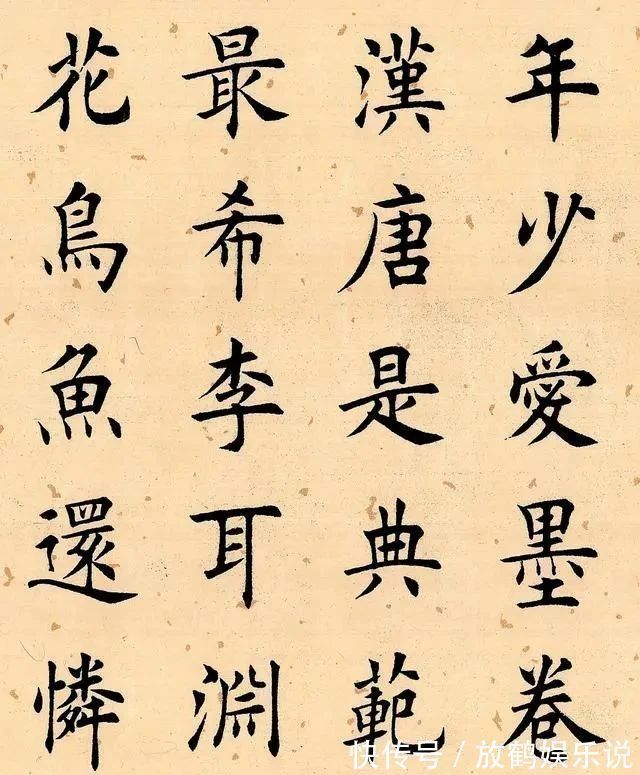 年少愛墨卷
漢唐是典範
最希李耳淵
花鳥魚還憐
快传号／放鹤娱乐说